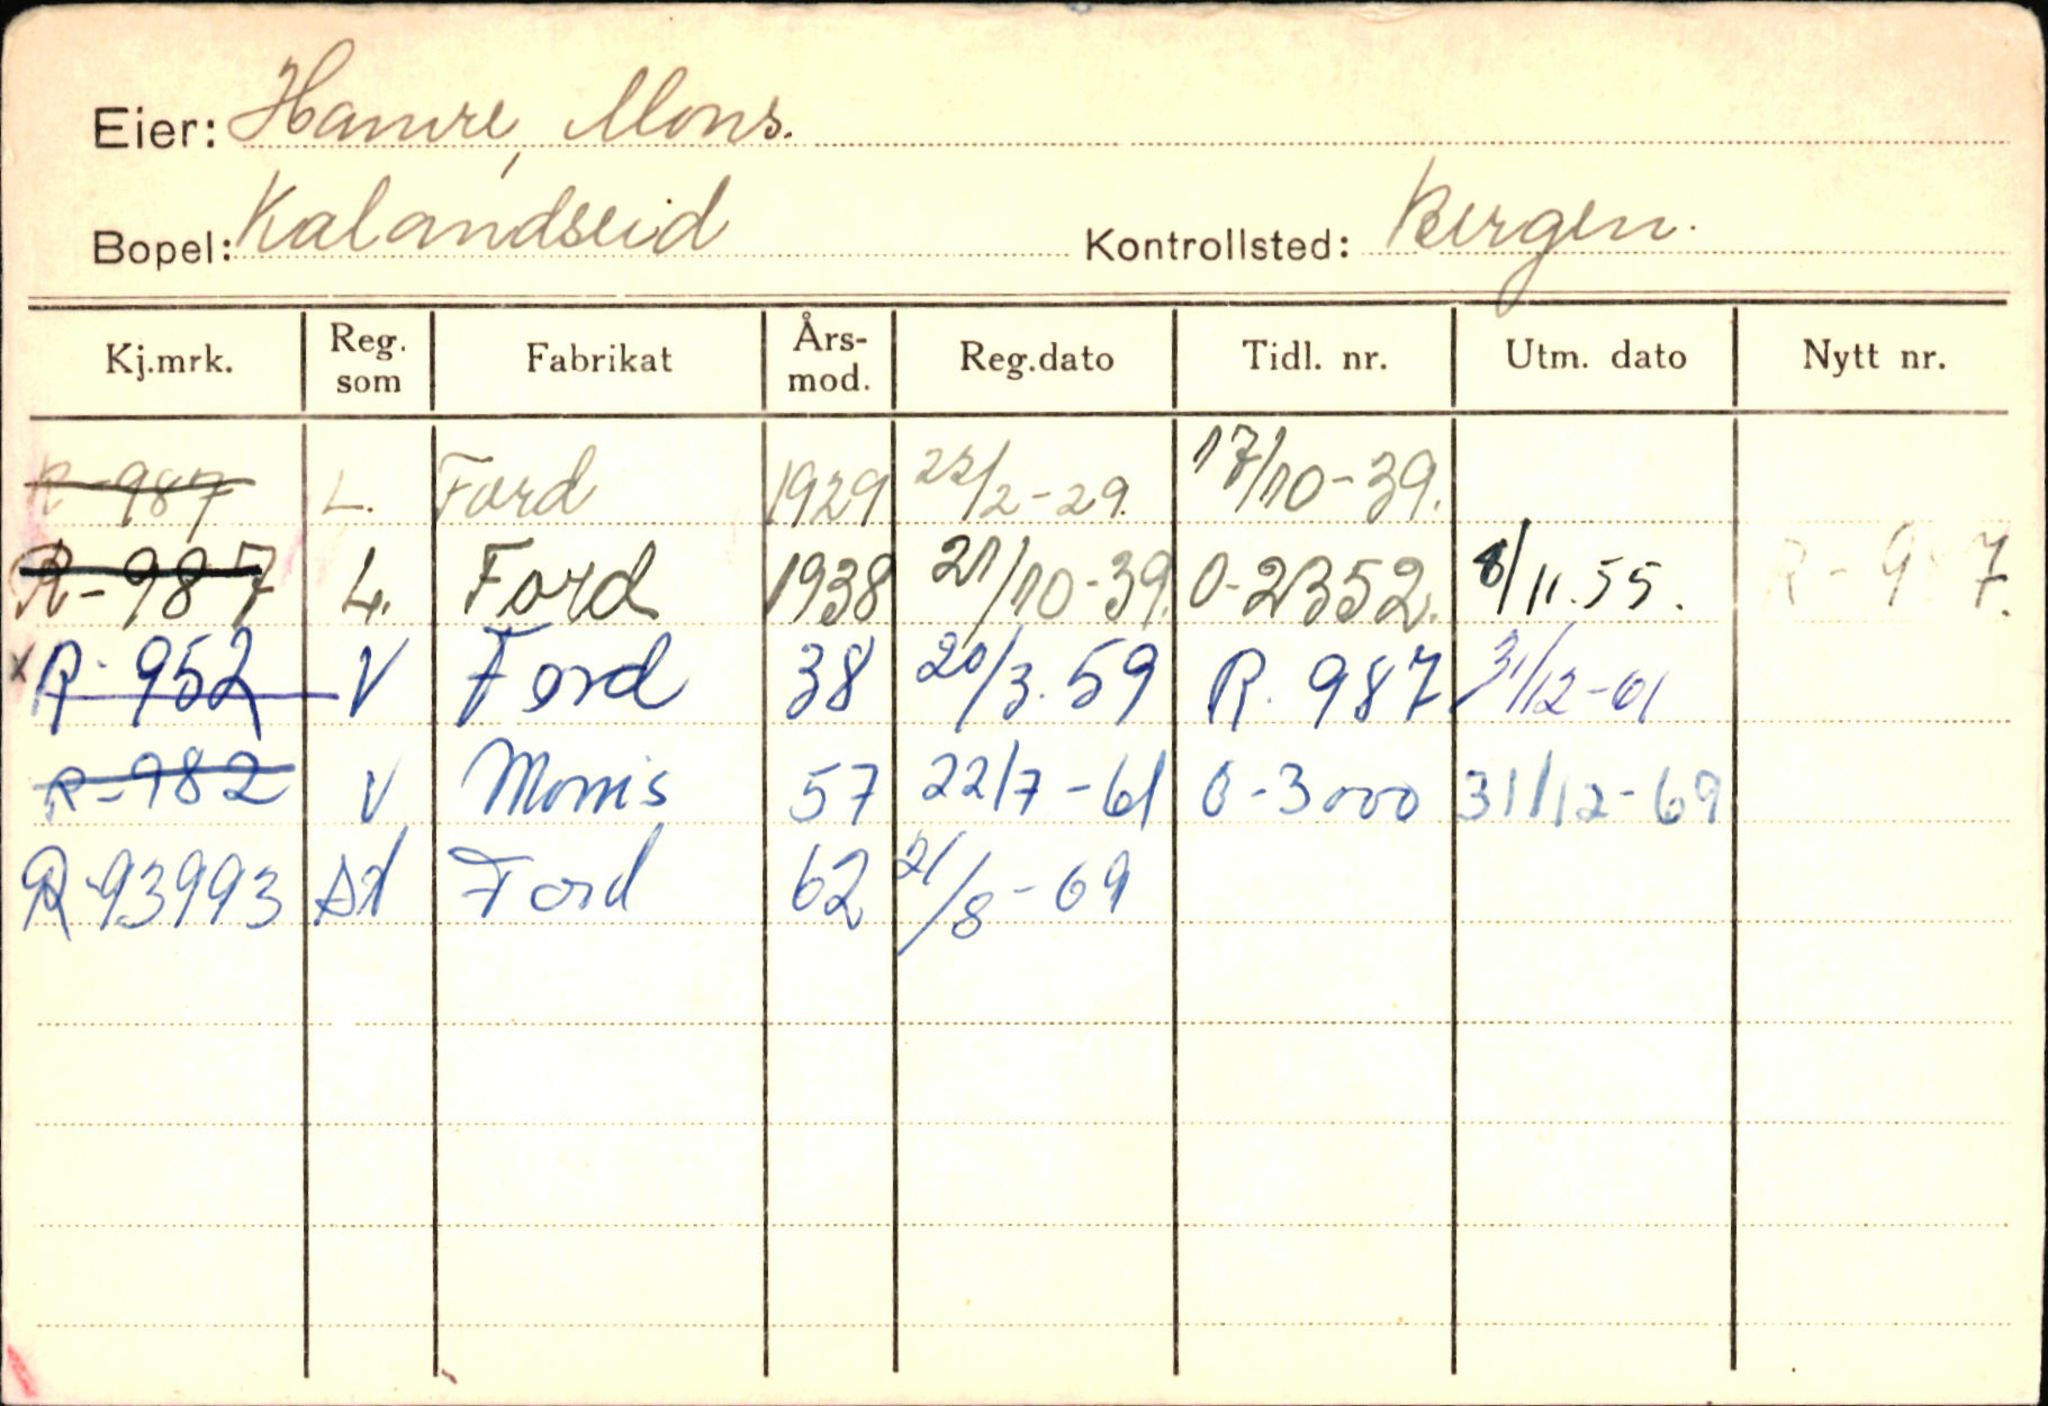 Eier: Hamre, Mons.
Bopel: Kalandseid Kontrollsted: Bergen.
Kj.mrk. Reg. som Fabrikat Års-mod. Reg.dato Tidl. nr. Utm. dato Nytt nr.
R-987 L. Ford 1929 22/2-29. 17/10-39.
R-987 L. Ford 1938 21/10-39. O-2352. 8/11.55. R-9 7.
x R-952 V Ford 38 20/3.59 R. 987 31/12-61
R-982 V Morris 57 22/7-61 O-3000 31/12-69
R-93993 Sd Ford 62 21/8-69